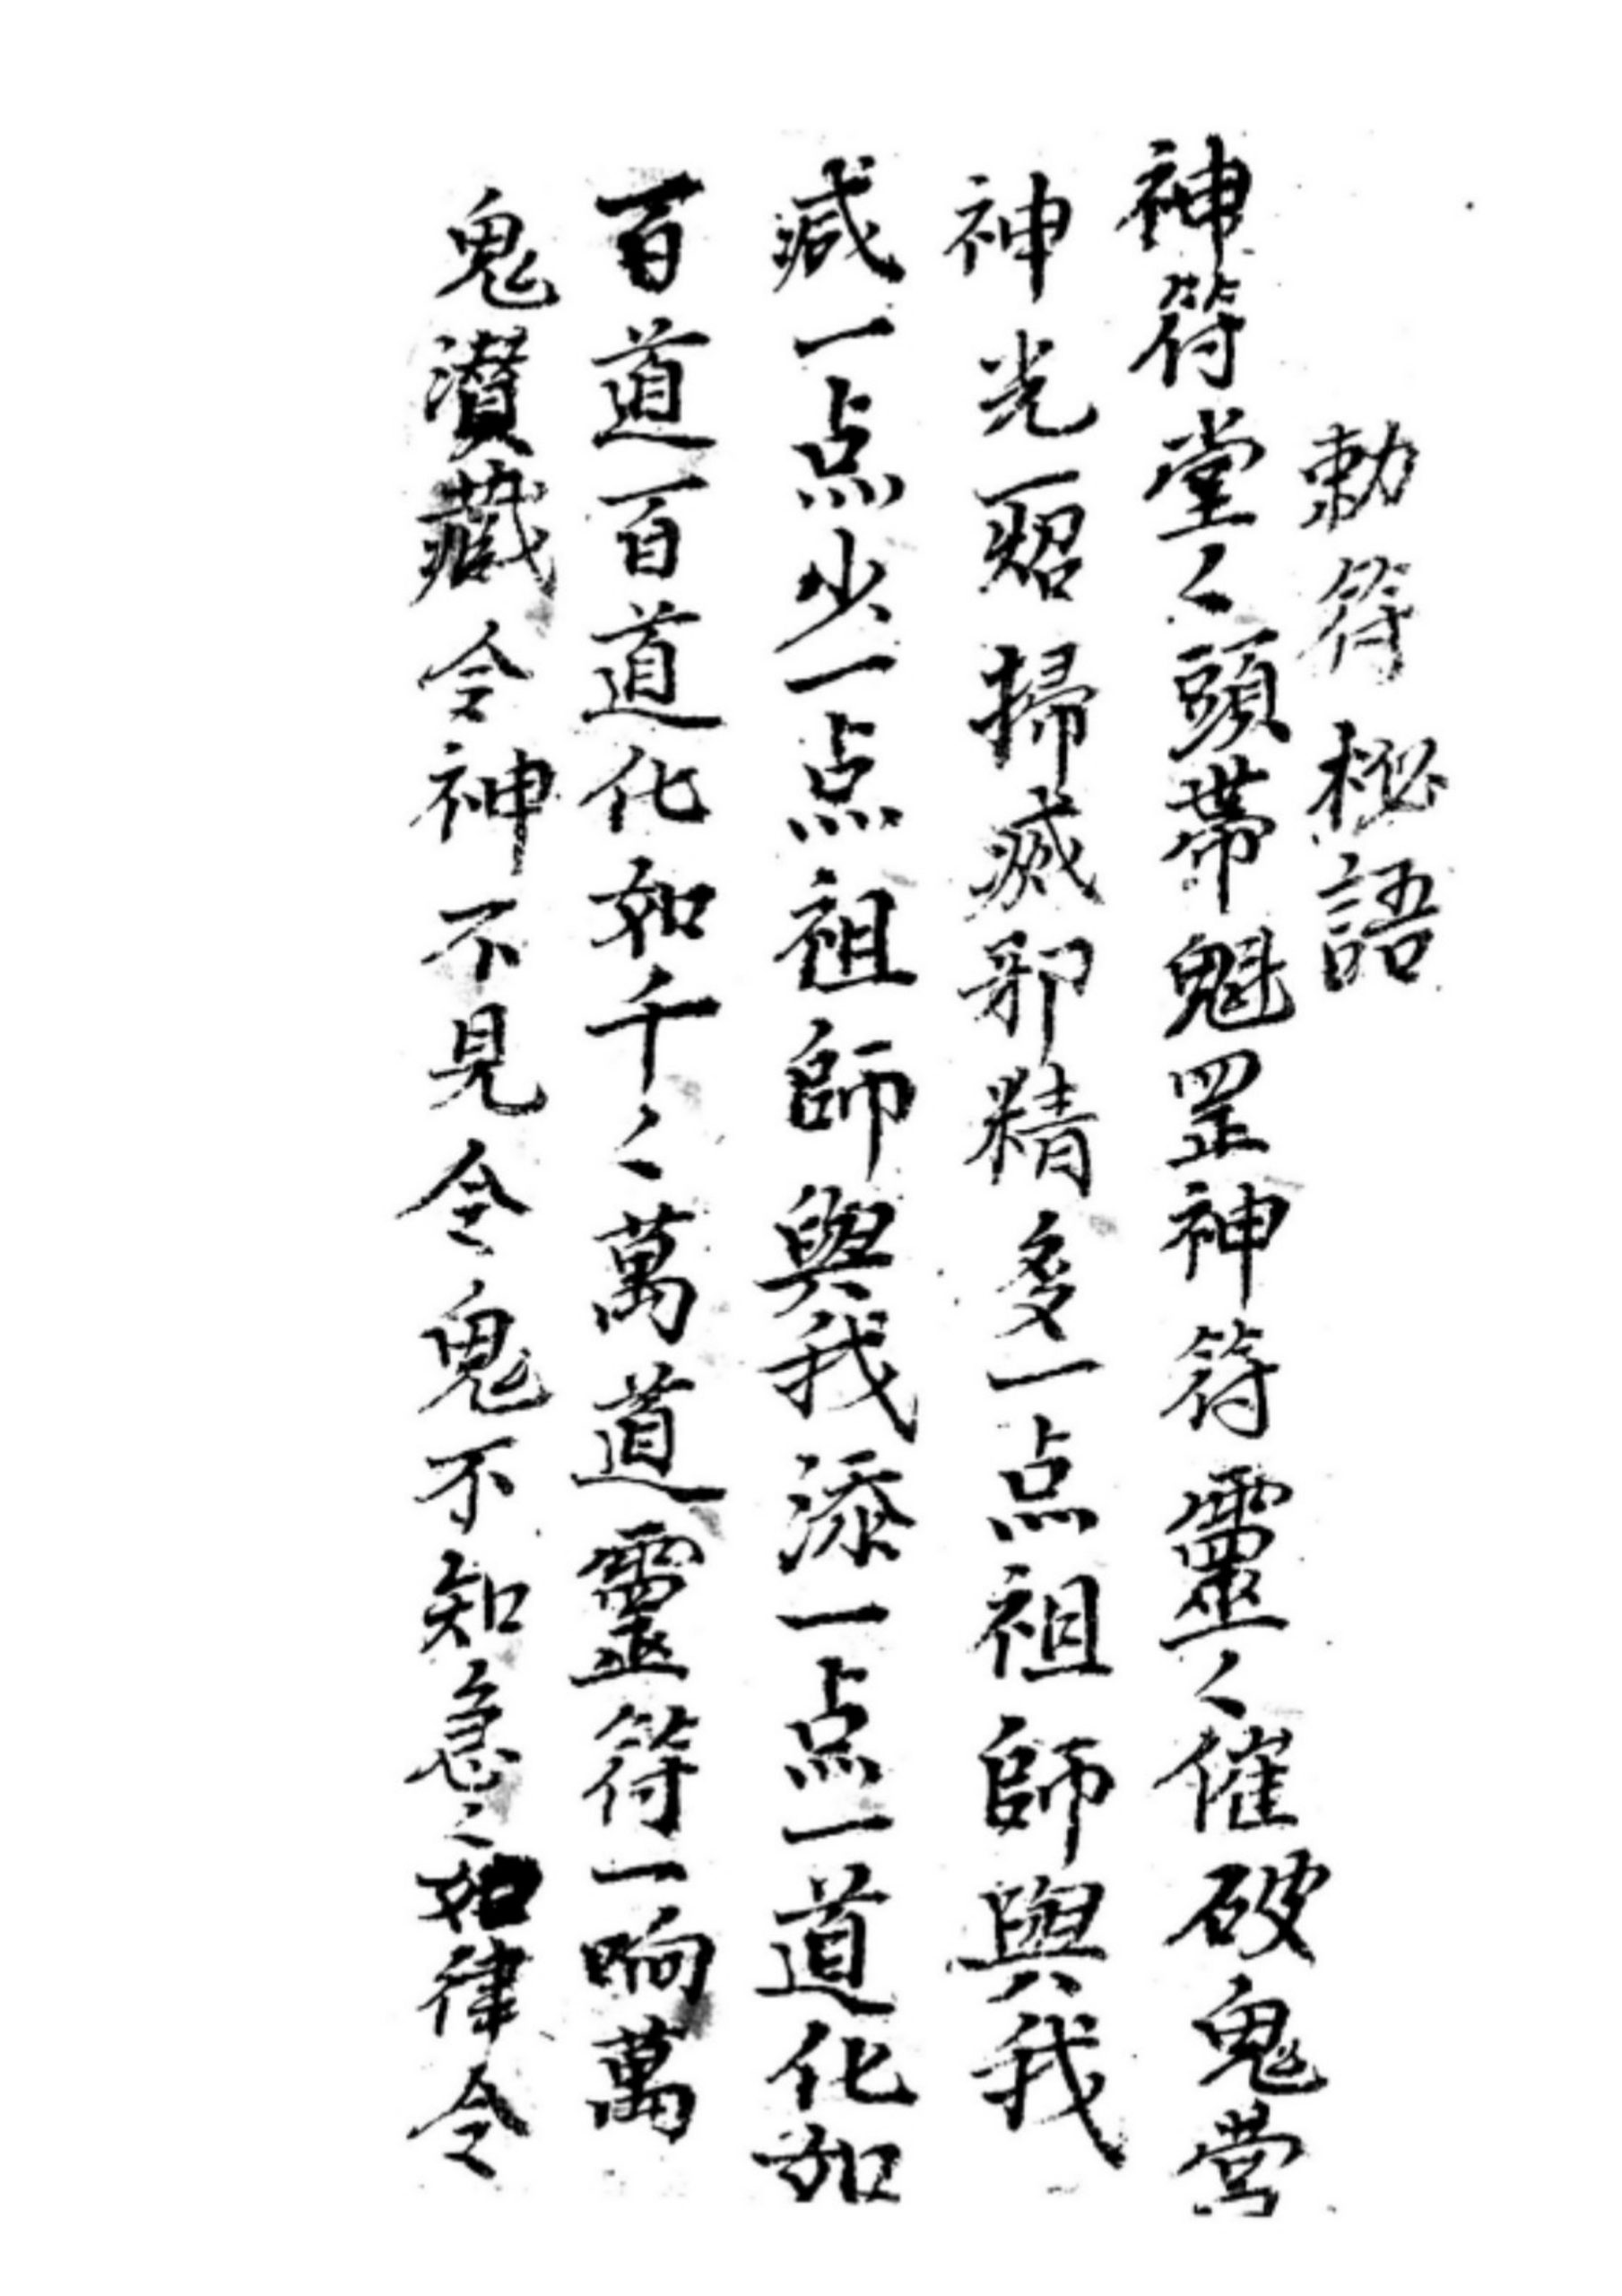 勅符秘語
神符堂々頭帶魁罡神符靈々催破鬼营
神光一照掃滅邪精多一点祖師與我
減一点少一点祖師與我添一点一道化如
百道一百道化如千々萬道靈符一响萬
鬼濳藏令神不見令鬼不知急々如律令